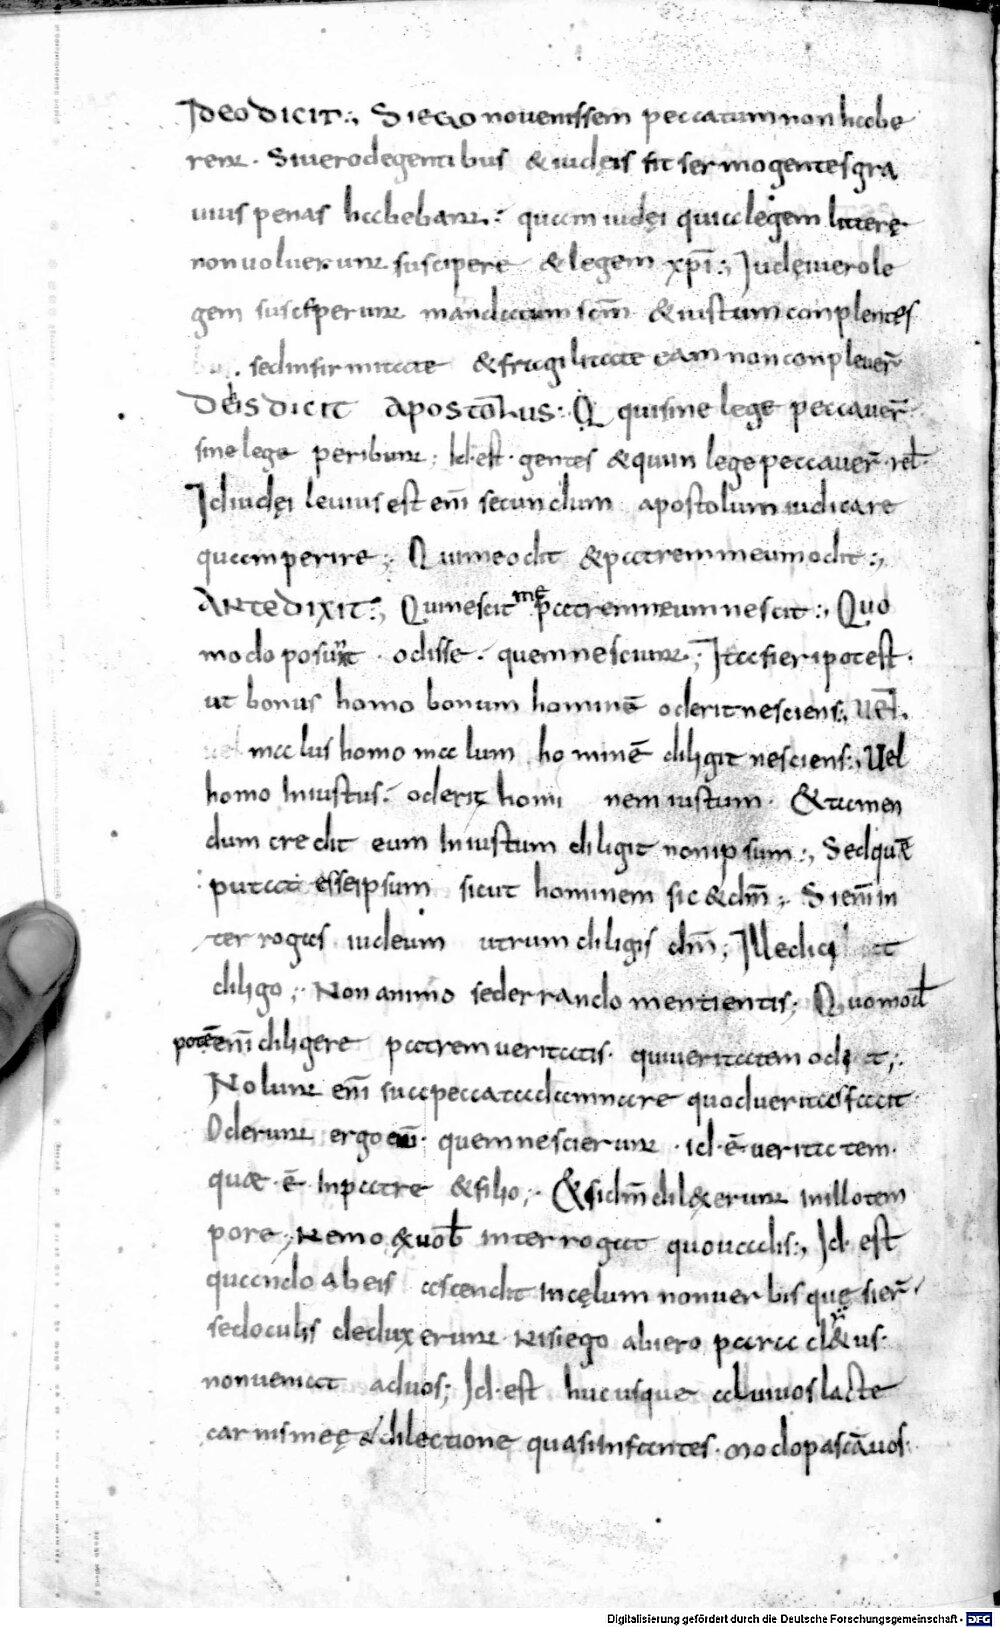 Ideo dicit:, Si ego non uenissem peccatum non habe
rent. Si uero de gentibus & iudęis fit sermo gentes gra
uius penas habebant: quam iudęi quia legem litterę
non uoluerunt suscipere & legem xp̄i:, Iudęi uero le
gem susceperunt mandatum sc̄m & iustum complentes
sed infirmitate & fragilitate eam non conpleuer̄
De his dicit apostolus: Q qui sine lege peccauer̄
sine lege peribunt; Id. est. gentes & qui in lege peccauer̄. rel̄.
Id iudęi leuius est enī secundum apostolum iudicare
quam perire; Qui me odit & patrem meum odit:,
Ante dixit:, Qui nescit me patrem meum nescit:, Quo
modo possunt. odisse. quem nesciunt; Ita fieri potest.
ut bonus homo bonum hominē oderit nesciens:, uel.
malus homo malum hominē diligit nesciens:, Uel
homo iniustus. oderit homi nem iustum. & tamen
dum credit eum iniustum diligit non ipsum:, Sed quē
putat esse ipsum sicut hominem sic & dm̄; Si enī in
terrogas iudeum utrum diligis dm̄; Ille dicit
diligo; Non animo sed errando mentientis; Quomod̄
potē enī diligere patrem ueritatis. qui ueritatem odit;
Nolunt enī sua peccata damnare quod ueritas facit.
Oderunt ergo eū. quem nescierunt. id. ē ueritatem.
quæ. ē. in patre & filio;. & si dm̄ dil&erunt in illo tem
pore; Nemo & uob̄ interrogat quo uadis:, Id. est
quando abeis ascendit in cęlum non uerbis quęsier̄
sed oculis deduxerunt Nisi ego abiero paracl&us.
non ueniat ad uos; Id. est huc usque alui uos lacte
carnis meę & dilectione quasi infantes. modo pascā uos.
Digitalisierung gefördert durch die Deutsche Forschungsgemeinschaft - DFG